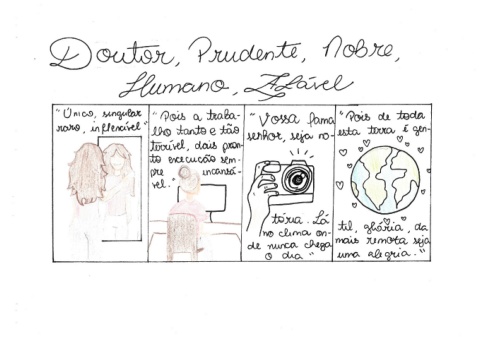 Doutor, Prudente, Nobre,
Humano, Afável
"Único, singular
raro, inflexível"
"Pois a traba-
lho tanto e tão
terrível, dais pron-
to execução sem-
pre incansá-
vel."
"Vossa fama
senhor, seja no-
tória. Lá
no clima on-
de nunca chega
o dia"
"Pois de toda
esta terra é gen-
til, glória, da
mais remota seja
uma alegria."